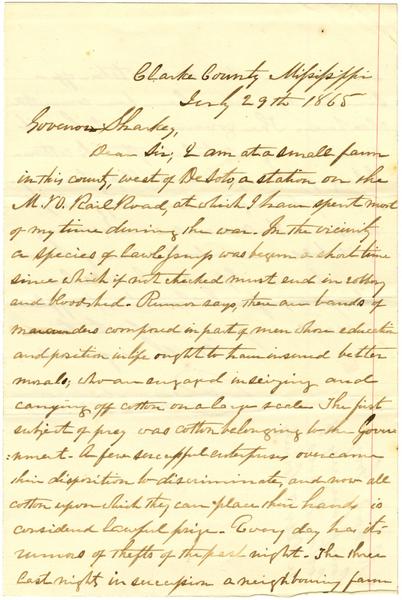 Clarke County Mississippi
July 29th 1865
Govenor Sharkey,
Dear Sir, I am at a small farm
in this county, west of DeSoto, a station on the
M. & O. Rail Road, at which I have spent most
of my time during the war. In the vicinity
a species of lawlessness was begun a short time
since which if not checked must end in robbery
and bloodshed. Rumor says, there are bands of
marauders composed in part of men whose education
and position in life ought to have insured better
morals, who are engaged in seizing and
carrying off cotton on a large scale. The first
subject of prey was cotton belonging to the Gover
nment. A few successful enterprises overcame
their disposition to discriminate, and now all
cotton upon which they can place their hands is
considered lawful prize. Every day has its
rumors of thefts of the past night. The three
last nights in succession a neighbouring farm